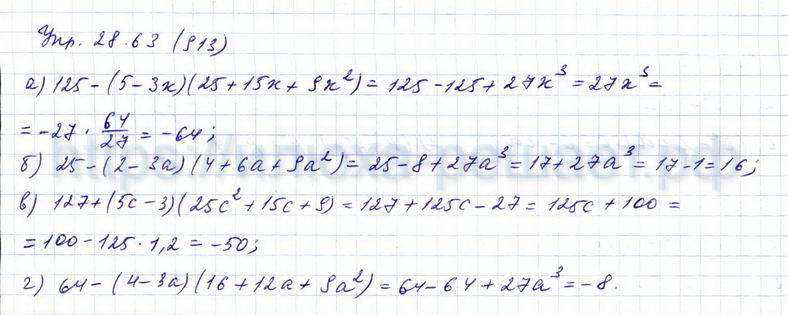 Упр. 28.63 (913)
а) 125 - (5 - 3x)(25 + 15x + 9x²) = 125 - 125 + 27x³ = 27x³ =
= -27 · 64/27 = -64;
б) 25 - (2 - 3a)(4 + 6a + 9a²) = 25 - 8 + 27a³ = 17 + 27a³ = 17 - 1 = 16;
в) 127 + (5c - 3)(25c² + 15c + 9) = 127 + 125c - 27 = 125c + 100 =
= 100 - 125 · 1,2 = -50;
г) 64 - (4 - 3a)(16 + 12a + 9a²) = 64 - 64 + 27a³ = -8.